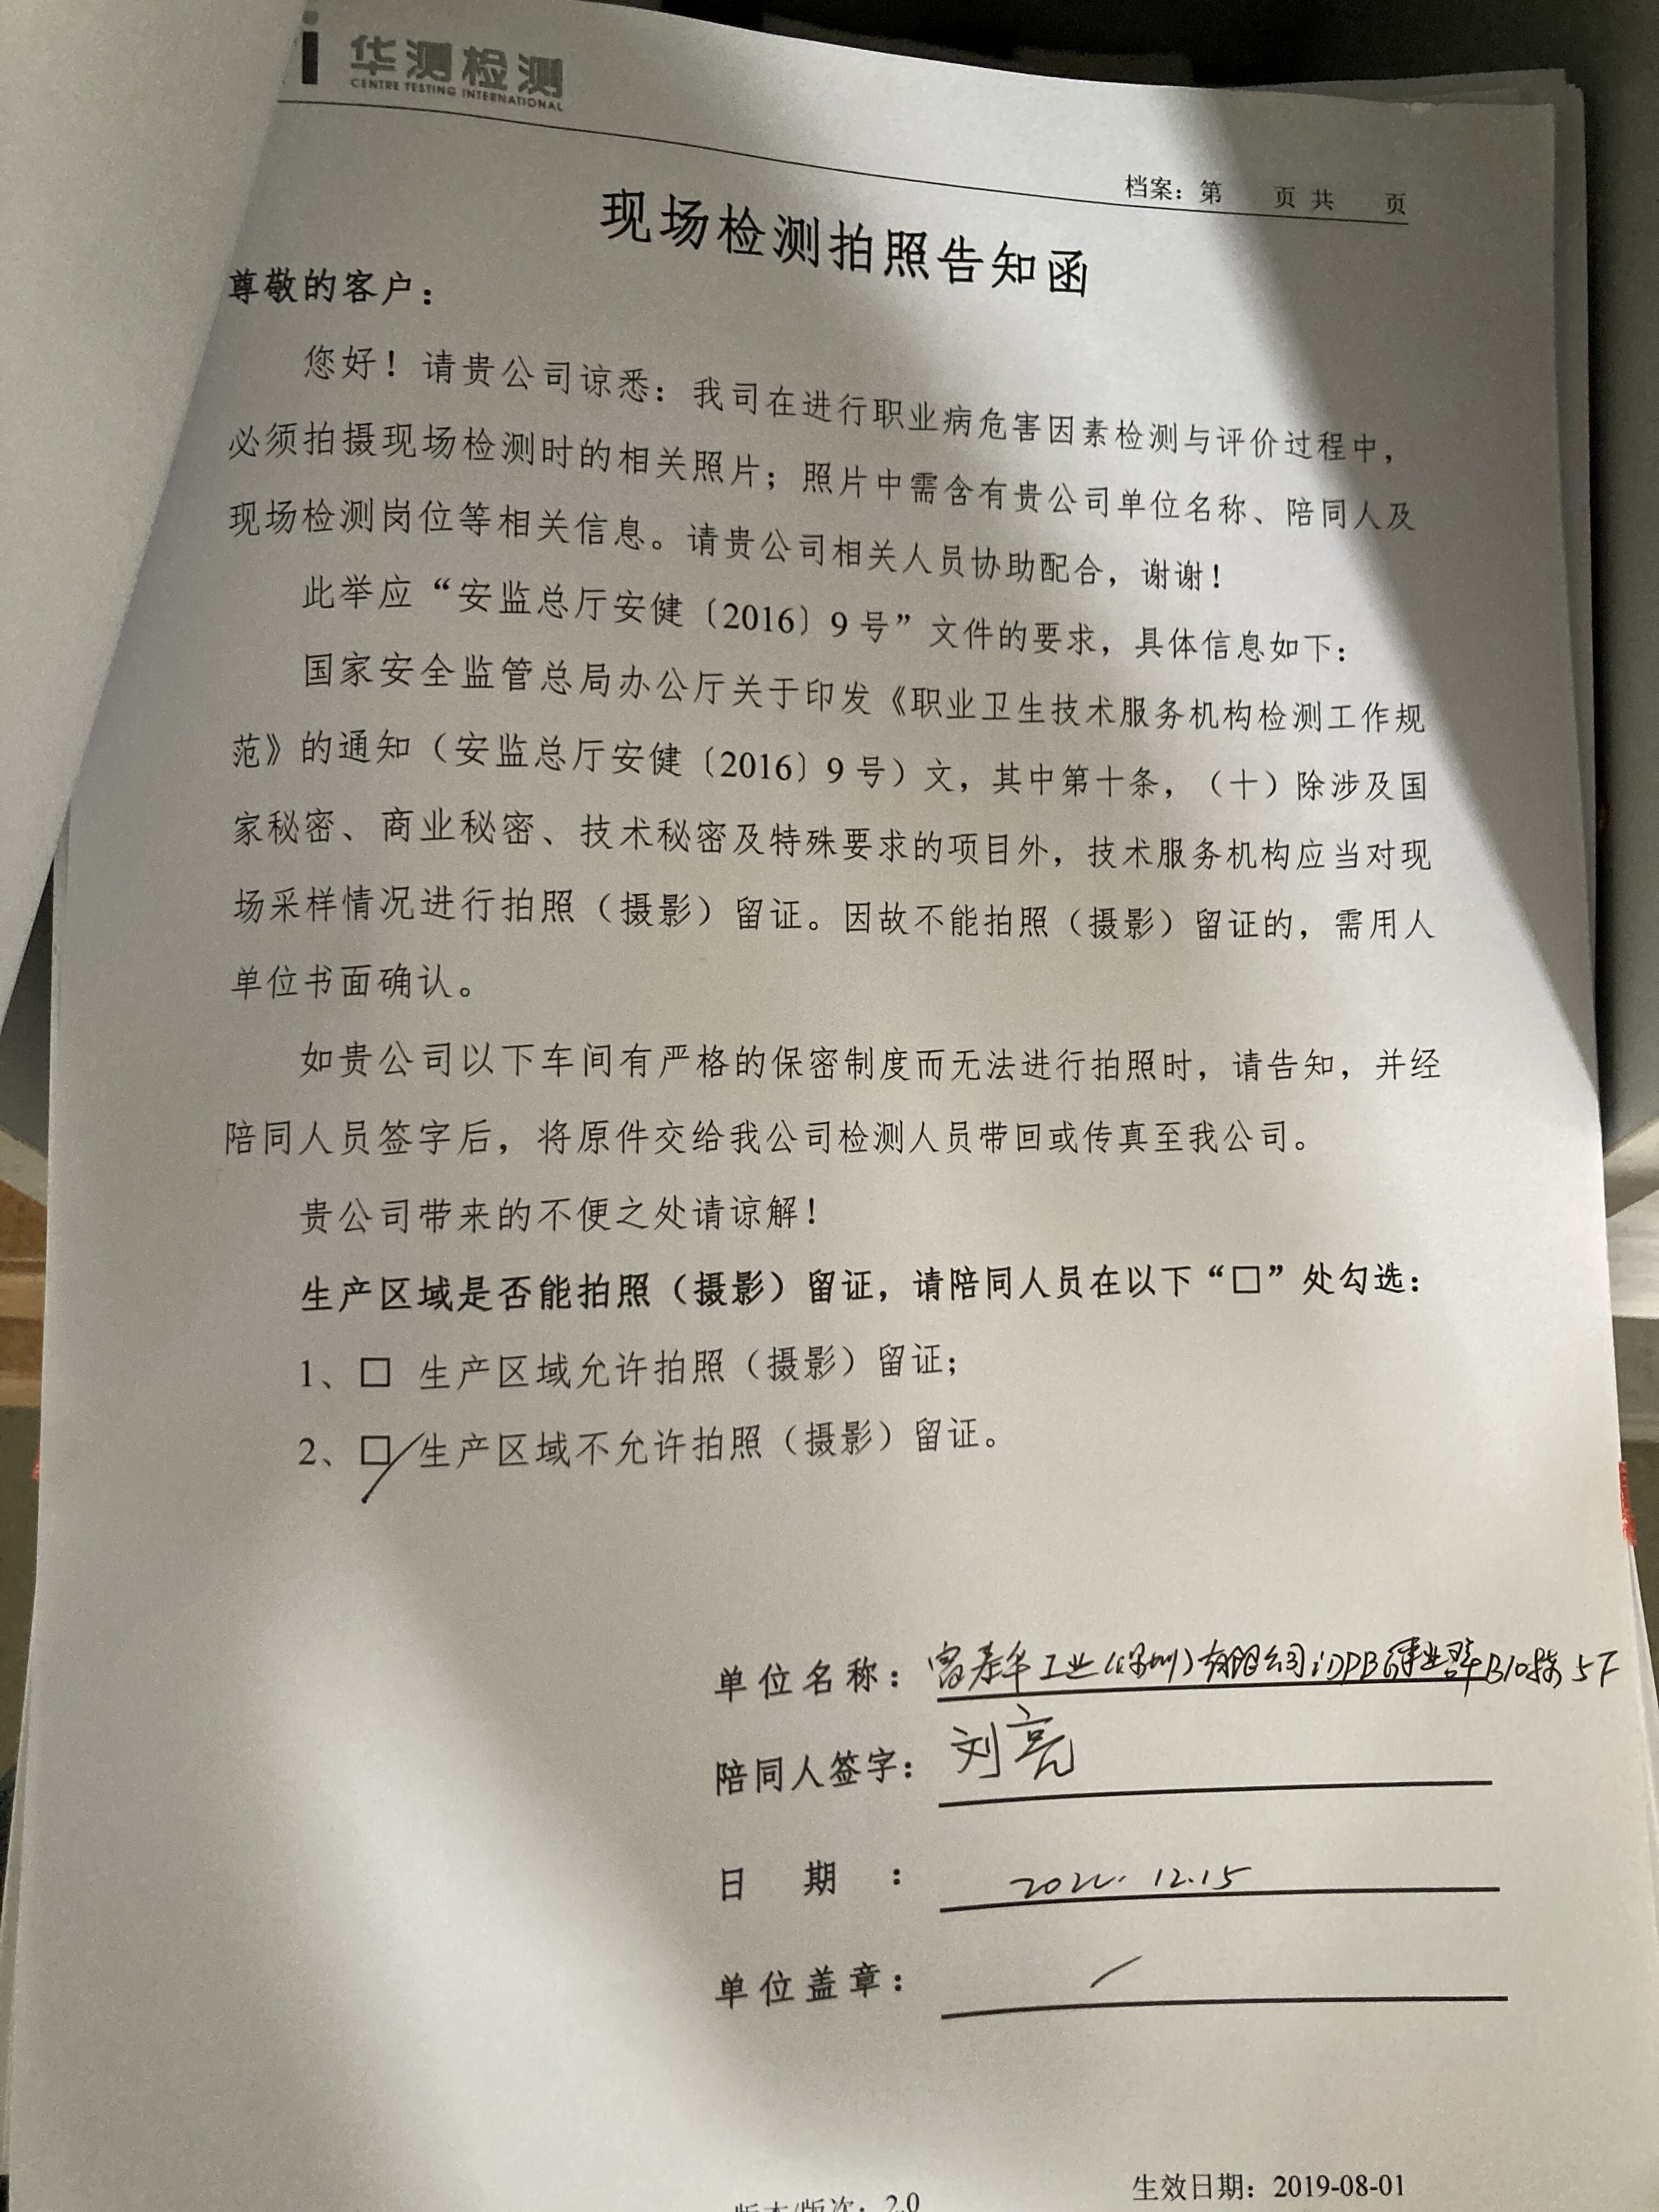 华测检测
CENTRE TESTING INTERNATIONAL
档案：第 页 共 页
现场检测拍照告知函
尊敬的客户：
您好！请贵公司谅悉：我司在进行职业病危害因素检测与评价过程中，
必须拍摄现场检测时的相关照片；照片中需含有贵公司单位名称、陪同人及
现场检测岗位等相关信息。请贵公司相关人员协助配合，谢谢！
此举应“安监总厅安健〔2016〕9 号”文件的要求，具体信息如下：
国家安全监管总局办公厅关于印发《职业卫生技术服务机构检测工作规
范》的通知（安监总厅安健〔2016〕9 号）文，其中第十条，（十）除涉及国
家秘密、商业秘密、技术秘密及特殊要求的项目外，技术服务机构应当对现
场采样情况进行拍照（摄影）留证。因故不能拍照（摄影）留证的，需用人
单位书面确认。
如贵公司以下车间有严格的保密制度而无法进行拍照时，请告知，并经
陪同人员签字后，将原件交给我公司检测人员带回或传真至我公司。
贵公司带来的不便之处请谅解！
生产区域是否能拍照（摄影）留证，请陪同人员在以下“□”处勾选：
1、□ 生产区域允许拍照（摄影）留证；
2、□ 生产区域不允许拍照（摄影）留证。
单位名称：富泰华工业(深圳)有限公司iDPB事业群B10栋5F
陪同人签字：刘亮
日 期 ：2022.12.15
单位盖章： /
版本/版次：2.0
生效日期：2019-08-01